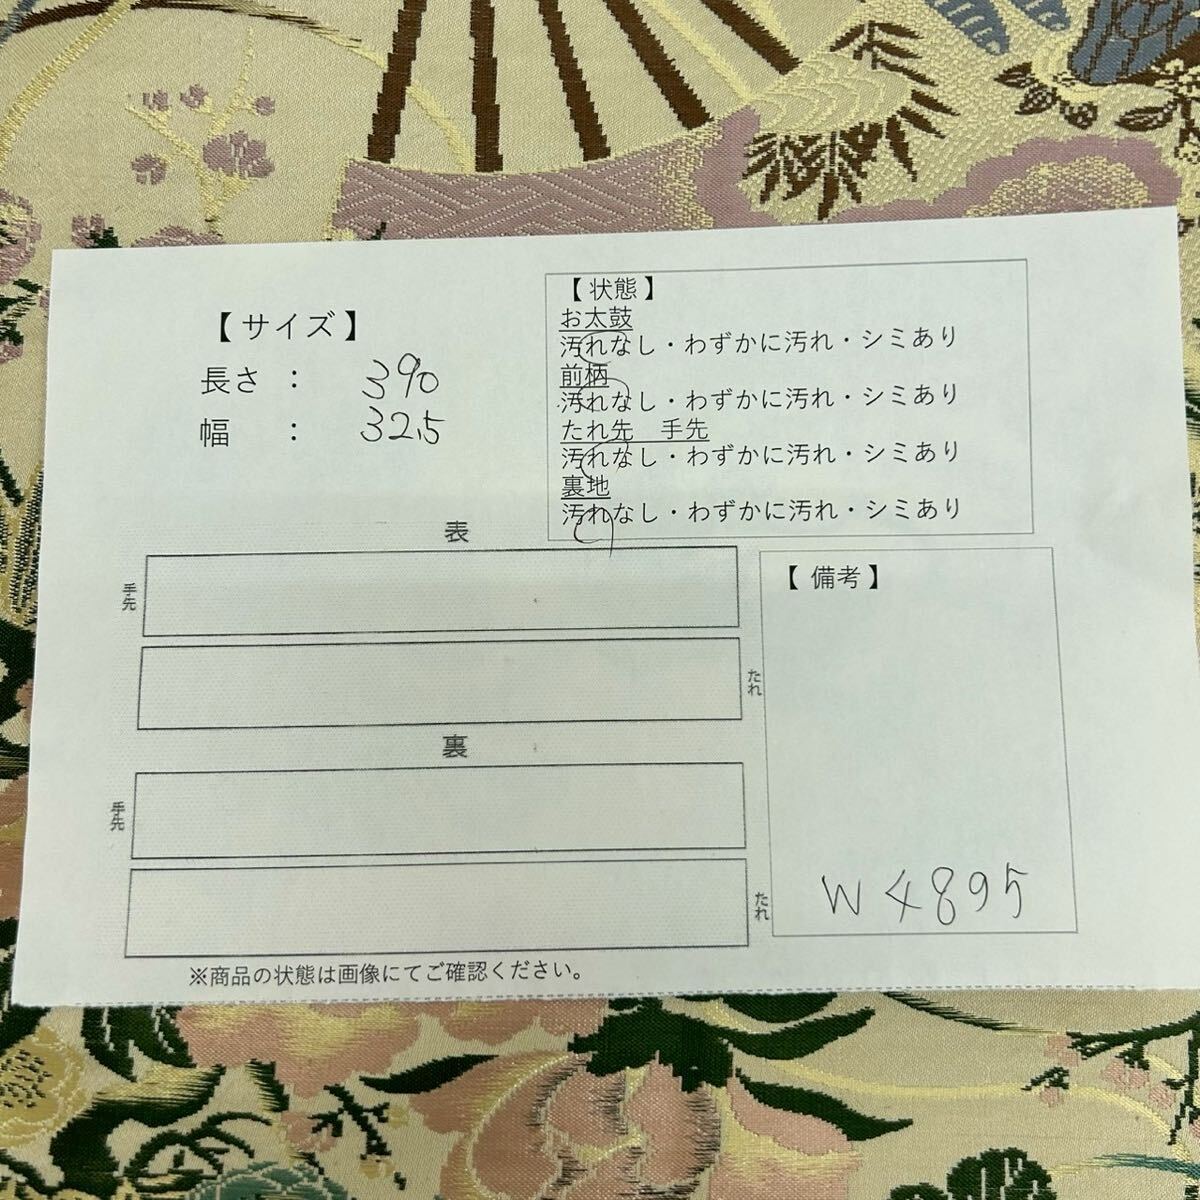 【サイズ】
長さ : 390
幅 : 32.5
【状態】
お太鼓
汚れなし・わずかに汚れ・シミあり
前柄
汚れなし・わずかに汚れ・シミあり
たれ先 手先
汚れなし・わずかに汚れ・シミあり
裏地
汚れなし・わずかに汚れ・シミあり
表
手先
たれ
裏
手先
たれ
【備考】
W4895
※商品の状態は画像にてご確認ください。